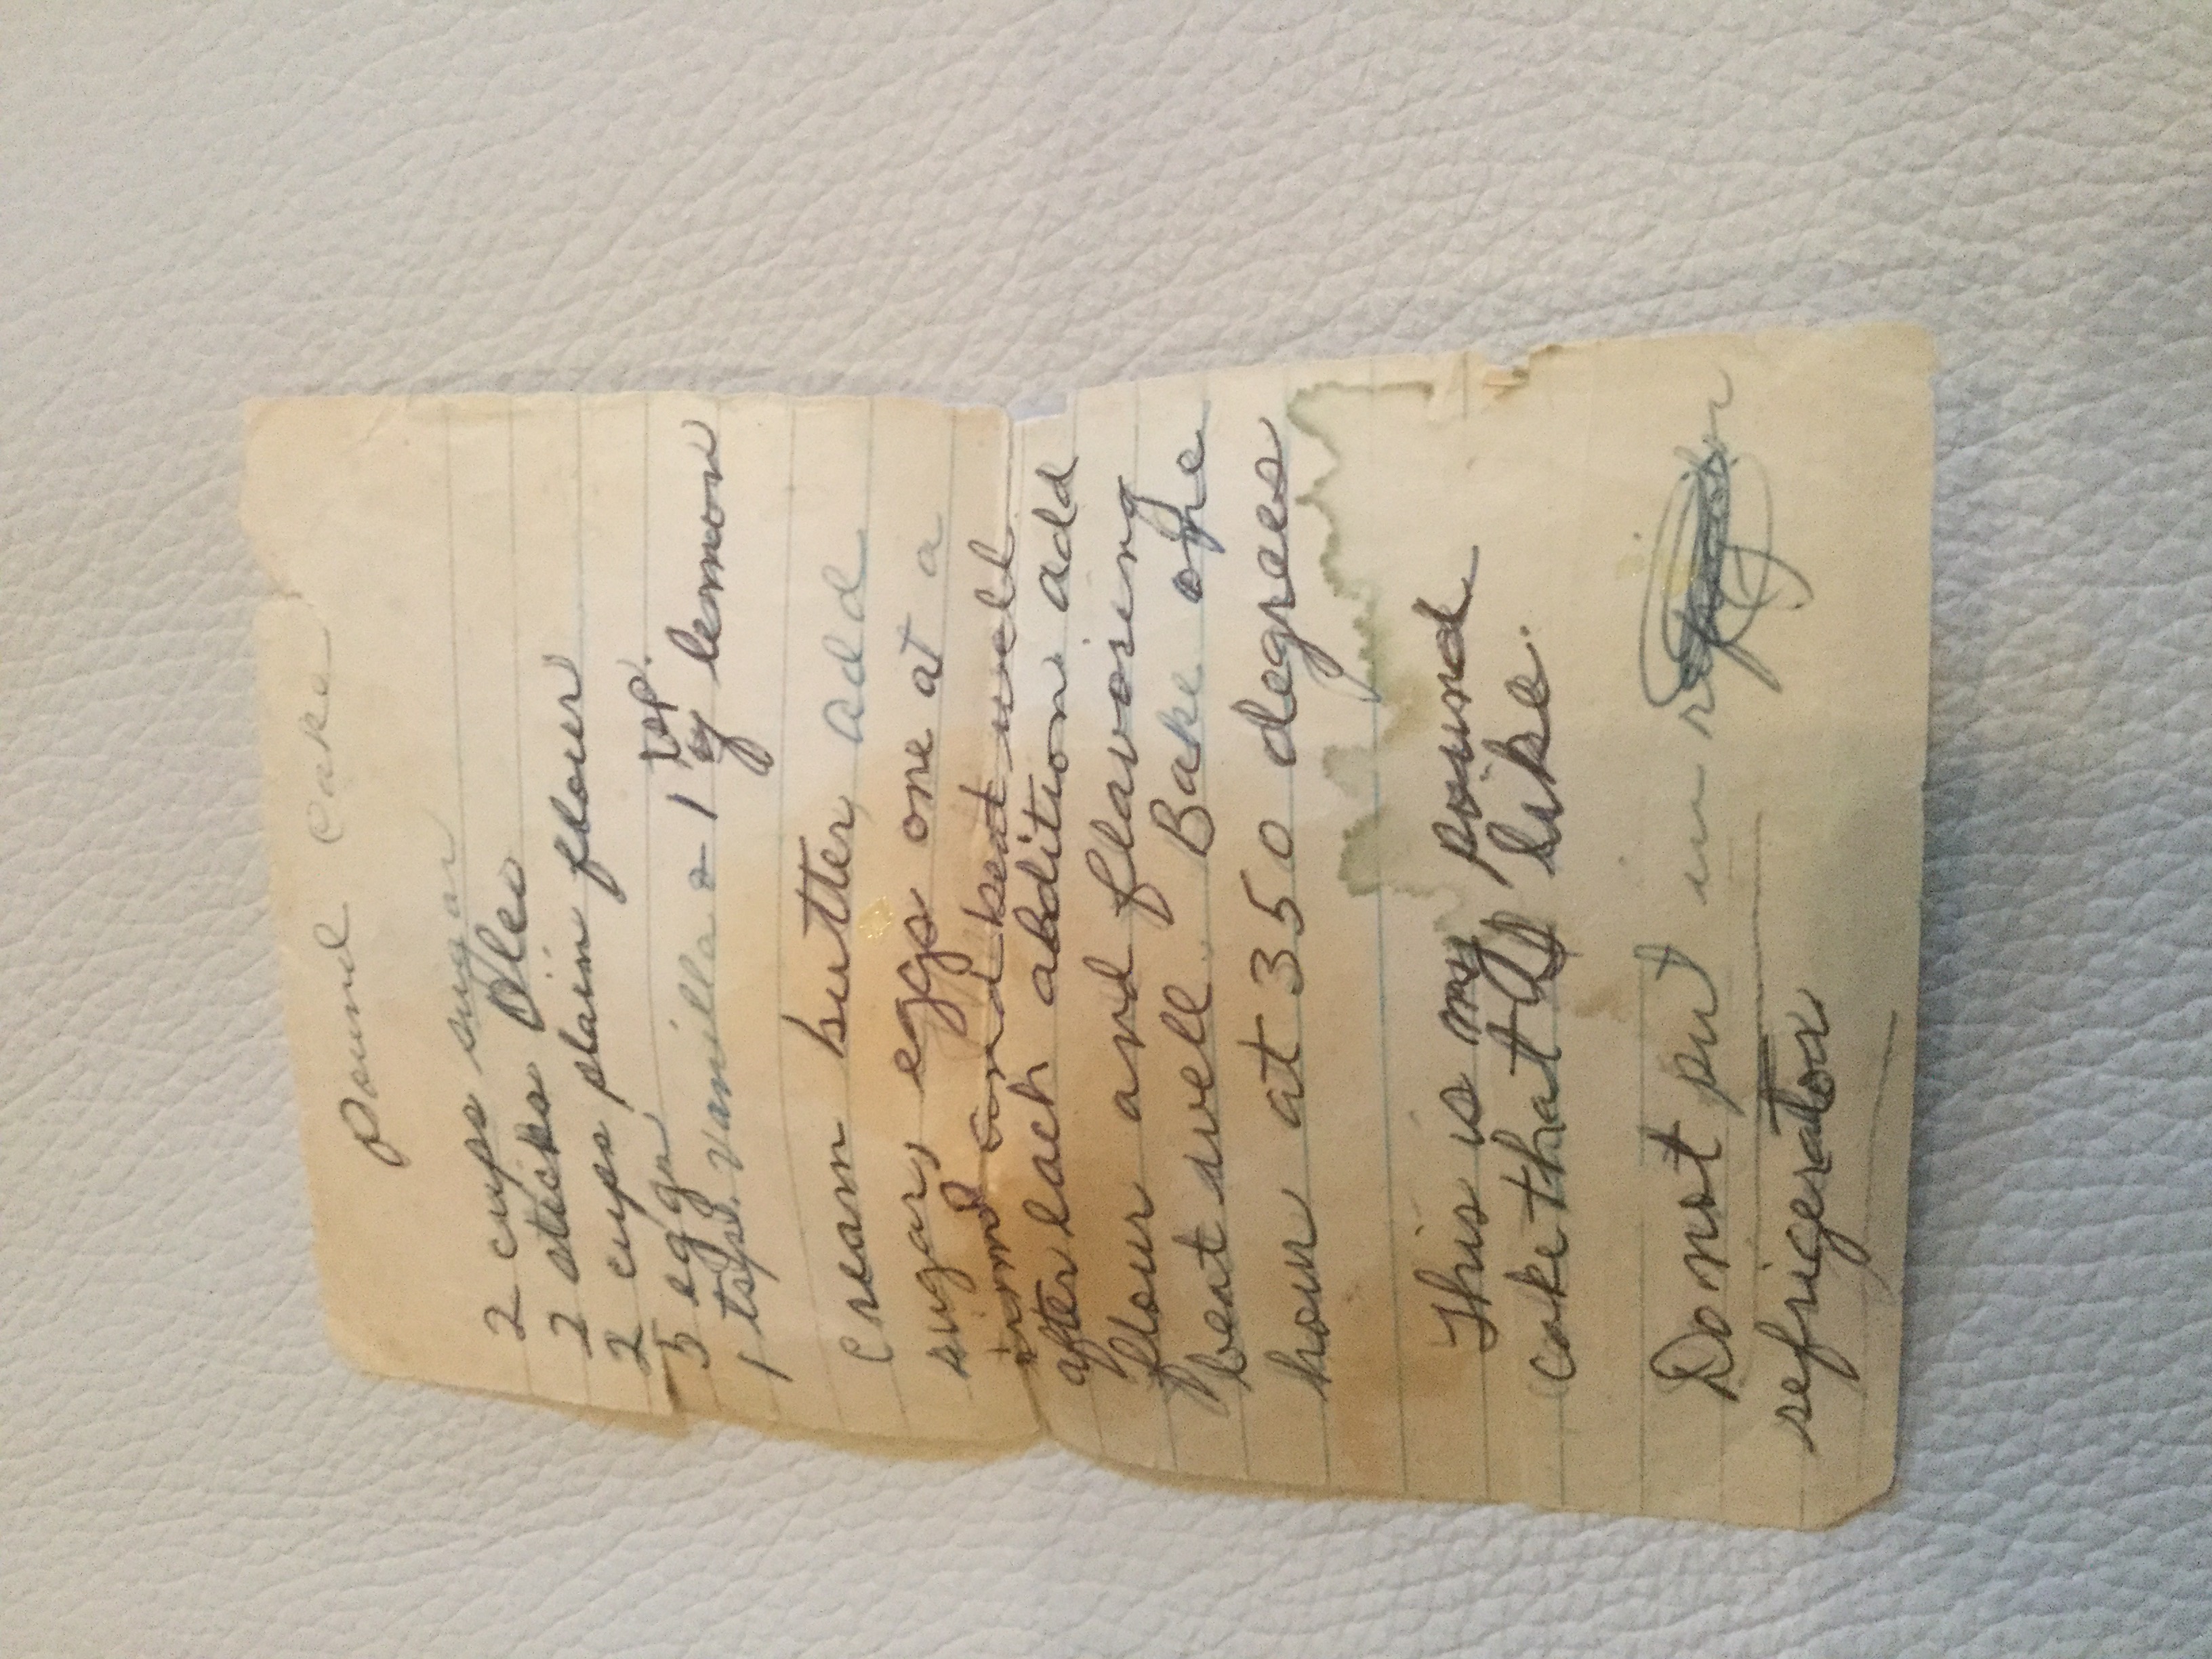 Pound Cake
2 cups sugar
2 sticks Oleo
2 cups plain flour
5 eggs
1 tsp. vanilla & 1 tsp. of lemon
Cream butter, add
sugar, eggs one at a
and beat well
after each addition add
flour and flavoring
beat well. Bake one
hour at 350 degrees
This is my pound
cake that like.
Do not put in
refrigerator